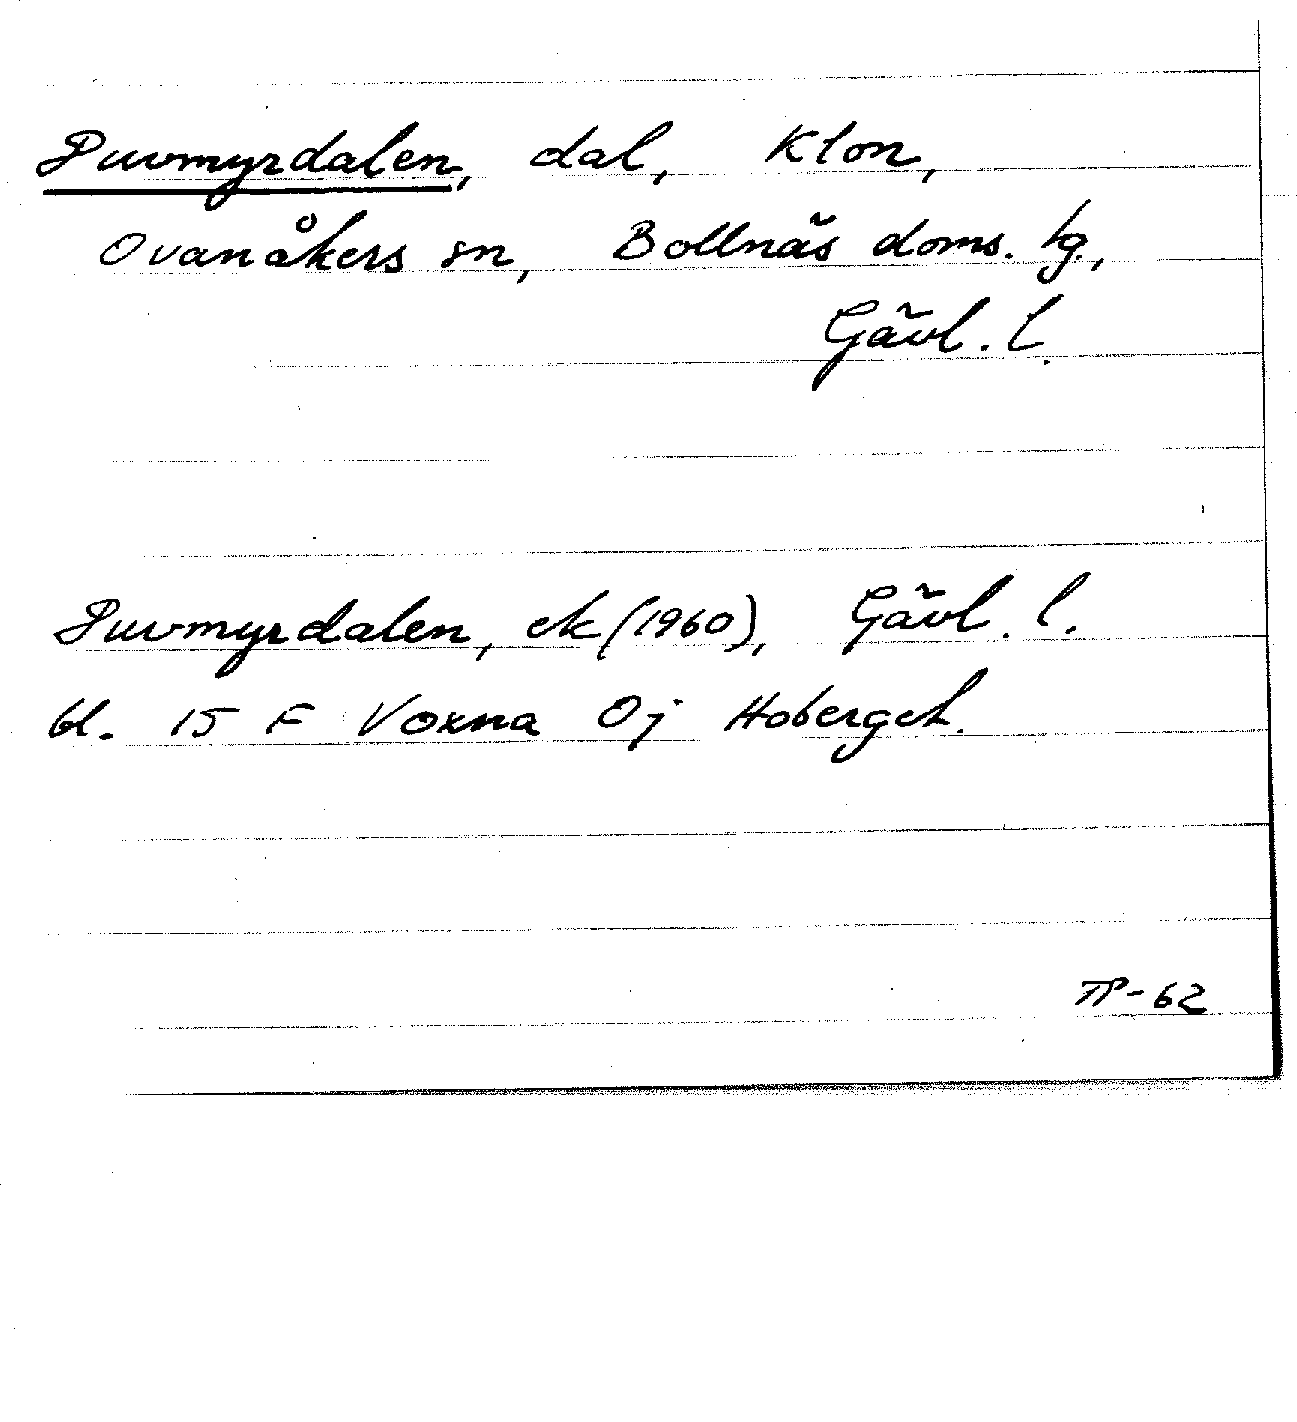 Puvmyrdalen, dal, Klon,
Ovanåkers sn, Bollnäs doms. tg.,
Gävl. l.
Puvmyrdalen, ek (1960), Gävl. l.
bl. 15 F Voxna 0j Hoberget.
TP-62